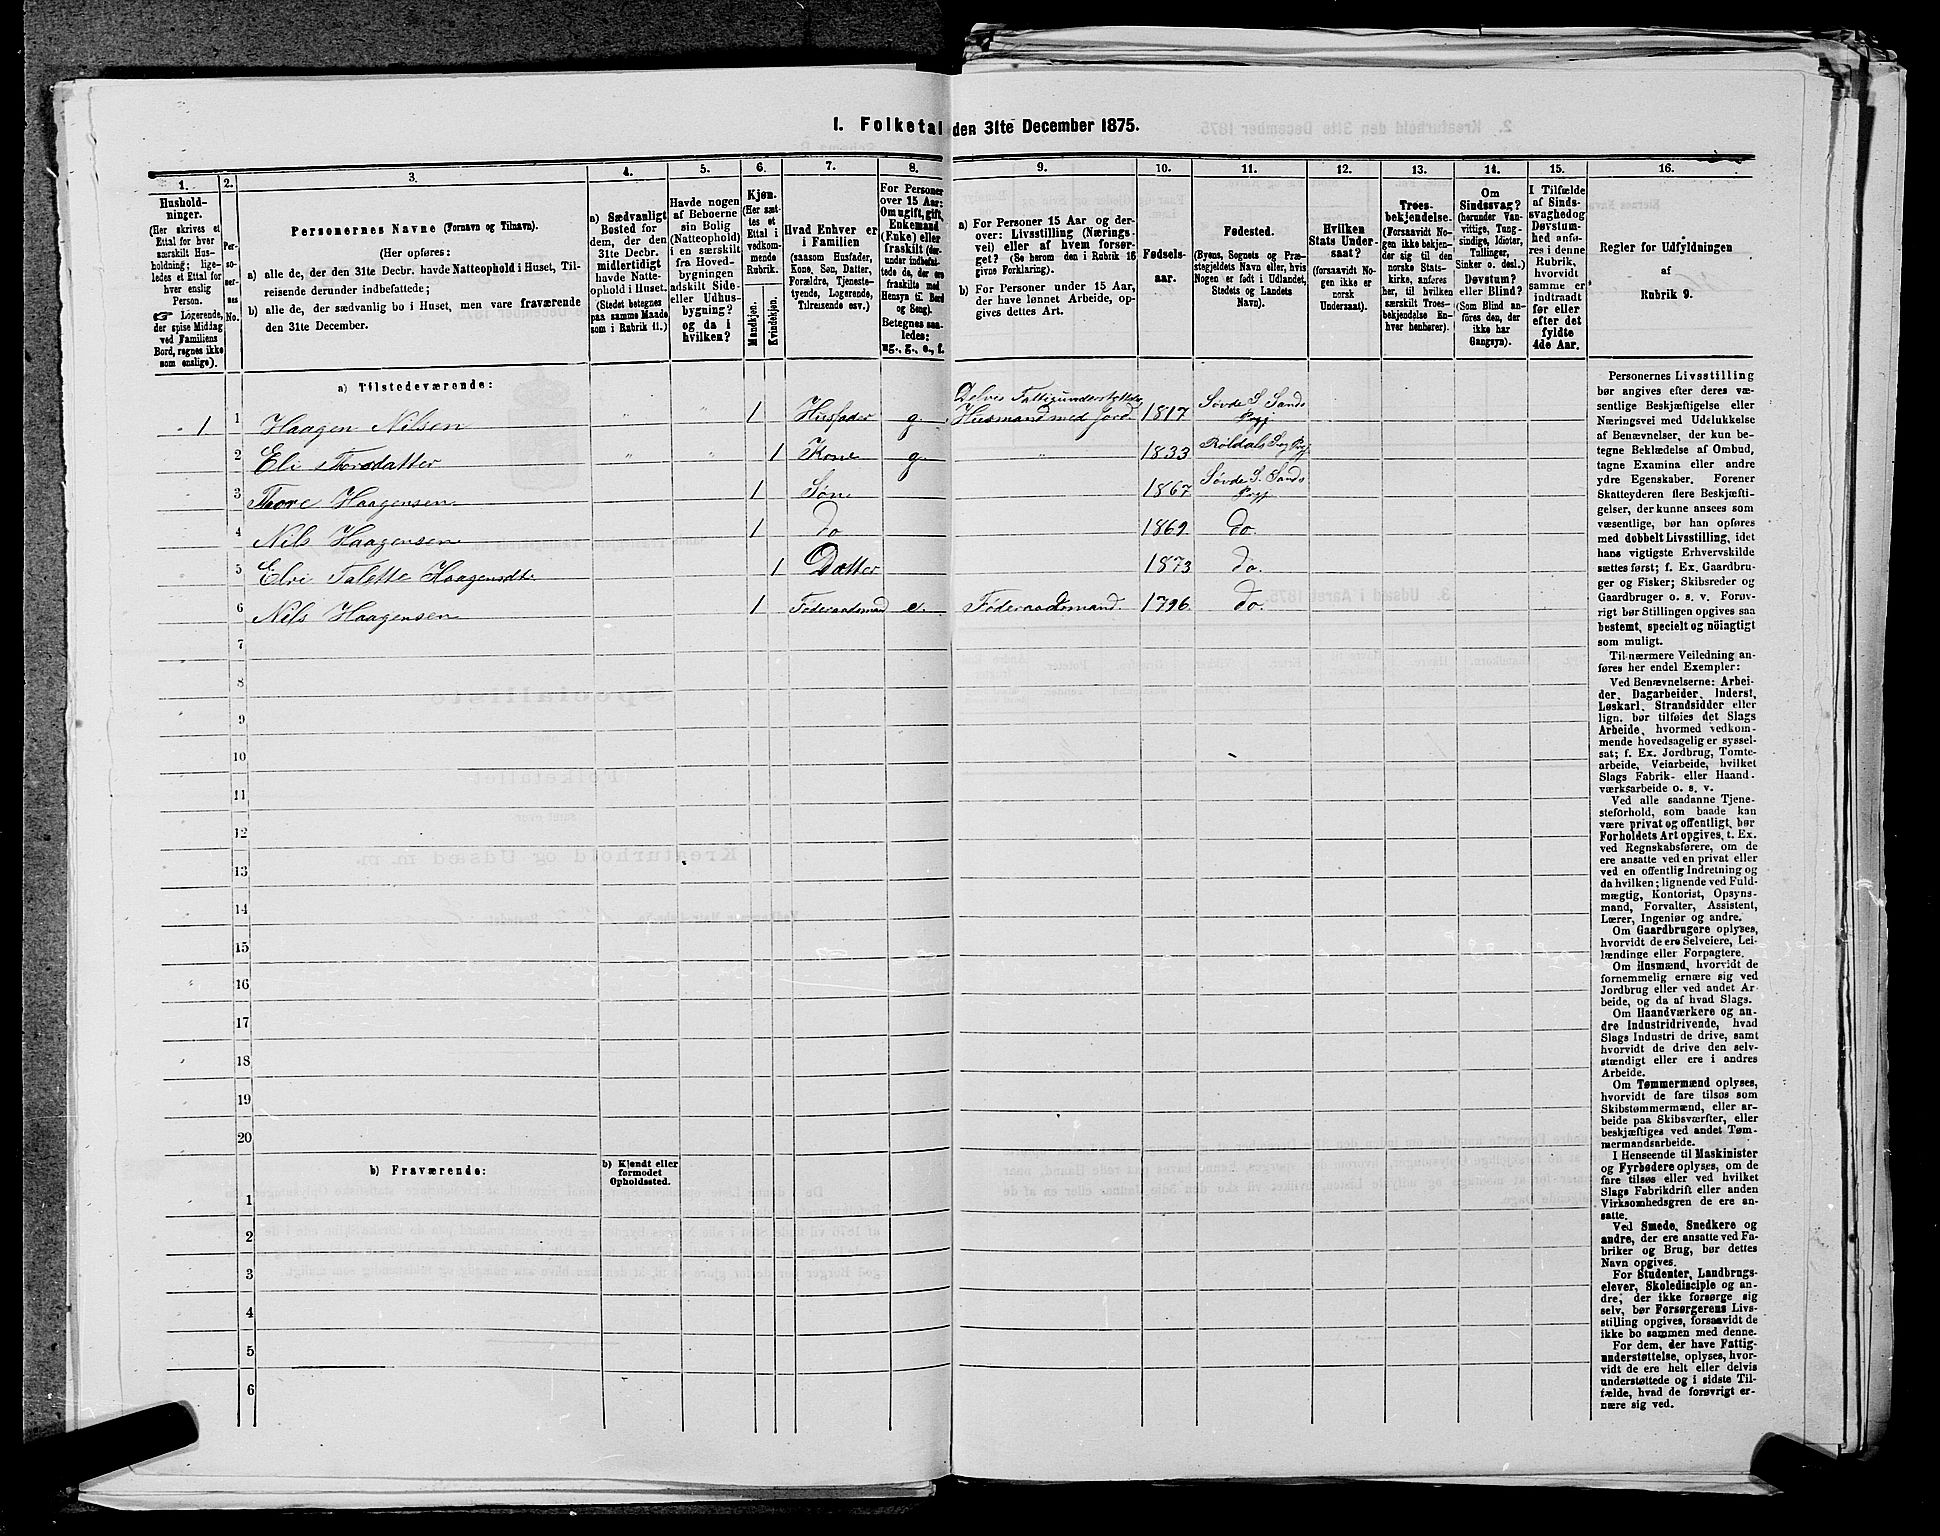 1. Folketal den 31te December 1875.
1.
Hushold-
ninger.
(Her skrives et
Ettal for hver
særskilt Hus-
holdning; lige-
ledes et Ettal for
hver enslig
Person.
☞ Logerende,
der spise Middag
ved Familiens
Bord, regnes ikke
som enslige).
2.
Per-
so-
ner-
nes
No.
3.
Personernes Navne (Fornavn og Tilnavn).
(Her opføres:
a) alle de, der den 31te Decbr. havde Natteophold i Huset, Til-
reisende derunder indbefattede;
b) alle de, der sædvanlig bo i Huset, men vare fraværende
den 31te December.
4.
a) Sædvanligt
Bosted for
dem, der den
31te Decbr.
midlertidigt
havde Natte-
ophold i Huset.
(Stedet betegnes
paa samme Maade
som i Rubrik 11.)
5.
Havde nogen
af Beboerne
sin Bolig
(Natteophold)
i en særskilt
fra Hoved-
bygningen
adskilt Side-
eller Udhus-
bygning?
og da i
hvilken?
6.
Kjøn.
(Her sæt-
tes et
Ettal i
vedkom-
mende
Rubrik.
Mandkjøn.
Kvindekjøn.
7.
Hvad Enhver er
i Familien
(saasom Husfader,
Kone, Søn, Datter,
Forældre, Tjeneste-
tyende, Logerende,
Tilreisende osv.)
8.
For Personer
over 15 Aar:
Om ugift, gift,
Enkemand
(Enke) eller
fraskilt (der-
under indbefat-
tede de, der ere
fraskilte med
Hensyn til Bord
og Seng).
Betegnes saa-
ledes:
ug., g., e., f.
9.
a) For Personer 15 Aar og der-
over: Livsstilling (Nærings-
vei) eller af hvem forsør-
get? (Se herom den i Rubrik 16
givne Forklaring).
b) For Personer under 15 Aar,
der have lønnet Arbeide, op-
gives dettes Art.
10.
Fødsels-
aar.
11.
Fødested.
(Byens, Sognets og Præ-
stegjeldets Navn eller, hvis
Nogen er født i Udlandet,
Stedets og Landets
Navn).
12.
Hvilken
Stats Under-
saat?
(forsaavidt No-
gen ikke er
norsk
Undersaat).
13.
Troes-
bekjendelse.
(Forsaavidt No-
gen ikke bekjen-
der sig til den
norske Stats-
kirke, anføres
her, til hvilken
særskilt Troes-
bekjendelse En-
hver henhører).
14.
Om
Sindssvag?
(herunder Van-
vittige, Tung-
sindige, Idioter,
Tullinger,
Sinker o. desl.)
Døvstum?
eller Blind?
(Som Blind an-
føres den, der
ikke har
Gangsyn).
15.
I Tilfælde
af Sinds-
svaghed og
Døvstum-
hed anfø-
res i denne
Rubrik,
hvorvidt
samme er
indtraadt
før eller
efter det
fyldte
4de Aar.
16.
Regler for Udfyldningen
af
Rubrik 9.
a) Tilstedeværende:
Delvis Fattigunderstyttelse
1 1 Haagen Nilsen " " 1 Husfader g Husmand med Jord 1817 Søvde S. Sands Prgj
2 Eli Toresdatter " " 1 Kone g " 1833 Røldals Sog Prgj
3 Tore Haagensen 1 Søn 1867 Søvde S. Sands Prgj
4 Nils Haagensen 1 do 1869 do.
5 Elvi Talette Haagensdt. 1 Datter 1873 do.
6 Nils Haagensen 1 Føderaadsmand e. Føderaadsmand. 1796 do.
7
8
9
10
11
12
13
14
15
16
17
18
19
20
b) Fraværende:
b) Kjendt eller
formodet
Opholdssted.
1
2
3
4
5
6
Personernes Livsstilling
bør angives efter deres væ-
sentlige Beskjæftigelse eller
Næringsvei med Udelukkelse
af Benævnelser, der kun be-
tegne Beklædelse af Ombud,
tagne Examina eller andre
ydre Egenskaber. Forener
Skatteyderen flere Beskjæfti-
gelser, der kunne ansees som
væsentlige, bør han opføres
med dobbelt Livsstilling, idet
hans vigtigste Erhvervskilde
sættes først; f. Ex. Gaardbru-
ger og Fisker; Skibsreder og
Gaardbruger o. s. v. Forøv-
rigt bør Stillingen opgives saa
bestemt, specielt og nöiagtigt
som muligt.
Til nærmere Veiledning an-
føres her endel Exempler:
Ved Benævnelserne: Arbei-
der, Dagarbeider, Inderst,
Løskarl, Strandsidder eller
lign. bør tilføies det Slags
Arbeide, hvormed vedkom-
mende hovedsagelig er syssel-
sat; f. Ex. Jordbrug, Tomte-
arbeide, Veiarbeide, hvilket
Slags Fabrik- eller Haand-
værksarbeide o. s. v.
Ved alle saadanne Tjene-
steforhold, som baade kan
være privat og offentligt, bør
Forholdets Art opgives, t. Ex.
ved Regnskabsførere, om de
ere ansatte ved en privat eller
ved en offentlig Indretning og
da hvilken; lignende ved Fuld-
mægtig, Kontorist, Opsyns-
mand, Forvalter, Assistent,
Lærer, Ingeniør og andre.
Om Gaardbrugere oplyses,
hvorvidt de ere Selveiere, Lei-
lændinge eller Forpagtere.
Om Husmænd, hvorvidt de
fornemmelig ernære sig ved
Jordbrug eller ved andet Ar-
beide, og da af hvad Slags.
Om Haandværkere og an-
dre Industridrivende, hvad
Slags Industri de drive, samt
hvorvidt de drive den selv-
stændigt eller ere i andres
Arbeide.
Om Tømmermænd oplyses,
hvorvidt de fare tilsøs som
Skibstømmermænd, eller ar-
beide paa Skibsværfter, eller
beskjæftiges ved andet Tøm-
mermandsarbeide.
I Henseende til Maskinister
og Fyrbødere oplyses, om de
fare tilsøs eller ved hvilket
Slags Fabrikdrift eller anden
Virksomhedsgren de ere an-
satte.
Ved Smede, Snedkere og
andre, der ere ansatte ved Fa-
briker og Brug, bør dettes
Navn opgives.
For Studenter, Landbrugs-
elever, Skoledisciple og an-
dre, der ikke forsørge sig
selv, bør Forsørgerens Livs-
stilling opgives, forsaavidt de
ikke bo sammen med denne.
For dem, der have Fattig-
understøttelse, oplyses, hvor-
vidt de ere helt eller delvis
understøttede og i sidste Til-
fælde, hvad de forøvrigt er-
nære sig ved.